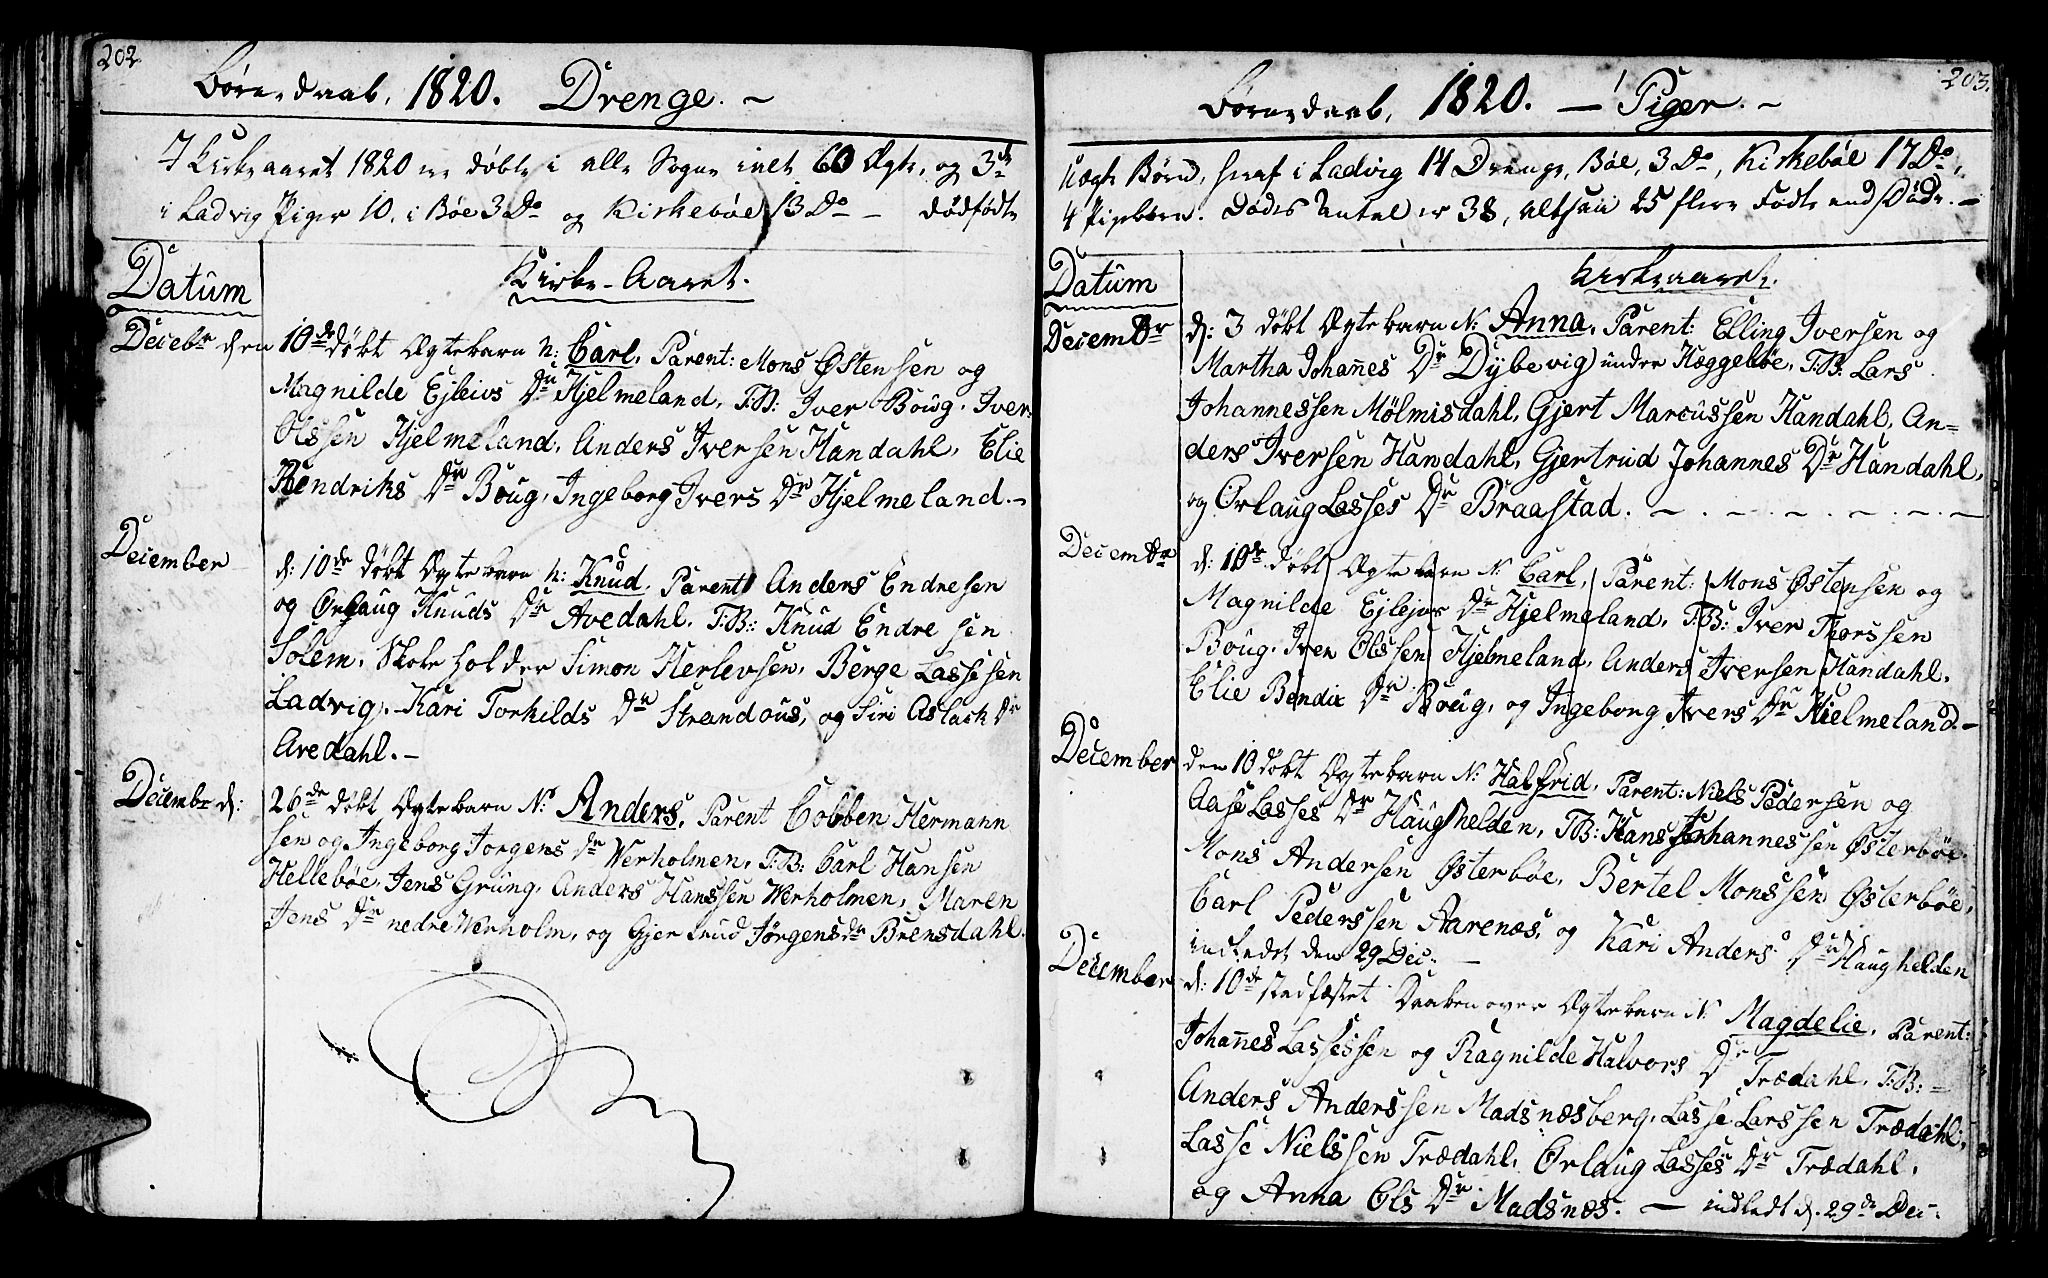 202.
Børnedaab, 1820. Drenge. –
I Kirkeaaret 1820 er døbte i alle Sogne inalt 60 Ægte, og 3de
i Ladvig Piger 10, i Bøe 3 Do og Kirkebøe 13 Do – Dødfødte
Datum
Kirke-Aaret.
Decebr den 10de døbt Ægtebarn N: Carl, Parent: Mons Østensen og
Magnilde Ejleivs Dr Hjelmeland, T.B: Iver Boug, Iver
Olssen Hjelmeland, Anders Iversen Handahl, Elie
Hendriks Dr Boug, Ingeborg Ivers Dr Hjelmeland. –
December d: 10de døbt Ægtebarn N: Knud, Parent Anders Endresen
og Ørlaug Knuds Dr Avedahl. T.B: Knud Endresen
Solem, Skoleholder Simon Herlevsen, Berge Lassesen
Ladvig, Kari Torkilds Dr Strandous, og Siri Aslack Dr
Avedahl. –
Decembr d: 26de døbt Ægtebarn N: Anders, Parent Cobben Hermann
sen og Ingeborg Jorgens Dr Werholmen, T.B: Carl Hansen
Hellebøe, Jens Grung, Anders Hanssen Werholmen, Maren
Jens Dr nedre Werholm, og Gjertrud Jørgens Dr Brensdahl.
203.
Børnedaab, 1820. – Piger. –
uægte Børn, heraf i Ladvig 14 Drenge, Bøe, 3 Do, Kirkebøe 17 Do,
4 Pigebørn. Dødes Antal er 38, altsaa 25 flere Fødte end Døde. –
Datum
Kirkeaaret.
Decembr d: 3 døbt Ægtebarn N: Anna, Parent: Elling Iversen og
Martha Johanes Dr Dybevig under Hæggebøe, T.B: Lars
Johannessen Mølmisdahl, Gjert Marcussen Handahl, An=
ders Iversen Handahl, Gjertrud Johannes Dr Handahl,
og Ørlaug Lasses Dr Braastad. –
Decembr d: 10de døbt Ægtebarn N: Carl, Parent: Mons Østensen og
Magnilde Ejlejvs Dr Hjelmeland, T.B: Iver Thorssen
Boug, Iver Olssen Hjelmeland, Anders Iversen Handahl,
Elie Bendix Dr Boug, og Ingeborg Ivers Dr Hielmeland –
December den 10 døbt Ægtebarn N: Halfrid, Parent: Niels Pedersen og
Aase Lasses Dr Haughelden, T.B: Hans Johannessen Østerbøe,
Mons Andersen Østerbøe, Bertel Monssen Østerbøe,
Carl Pederssen Aarenæs, og Kari Anders Dr Haughelden
indledet den 29 Dec: –
December d: 10de stadfæstet Daaben over Ægtebarn N: Magdelie, Parent:
Johanes Lassessen og Ragnilde Halvors Dr Trædahl, T.B: –
Anders Anderssen Madsnæsberg, Lasse Larssen Trædahl,
Lasse Nielssen Trædahl, Ørlaug Lasses Dr Trædahl,
og Anna Ols Dr Madsnæs. – indledt d. 29de Dec: